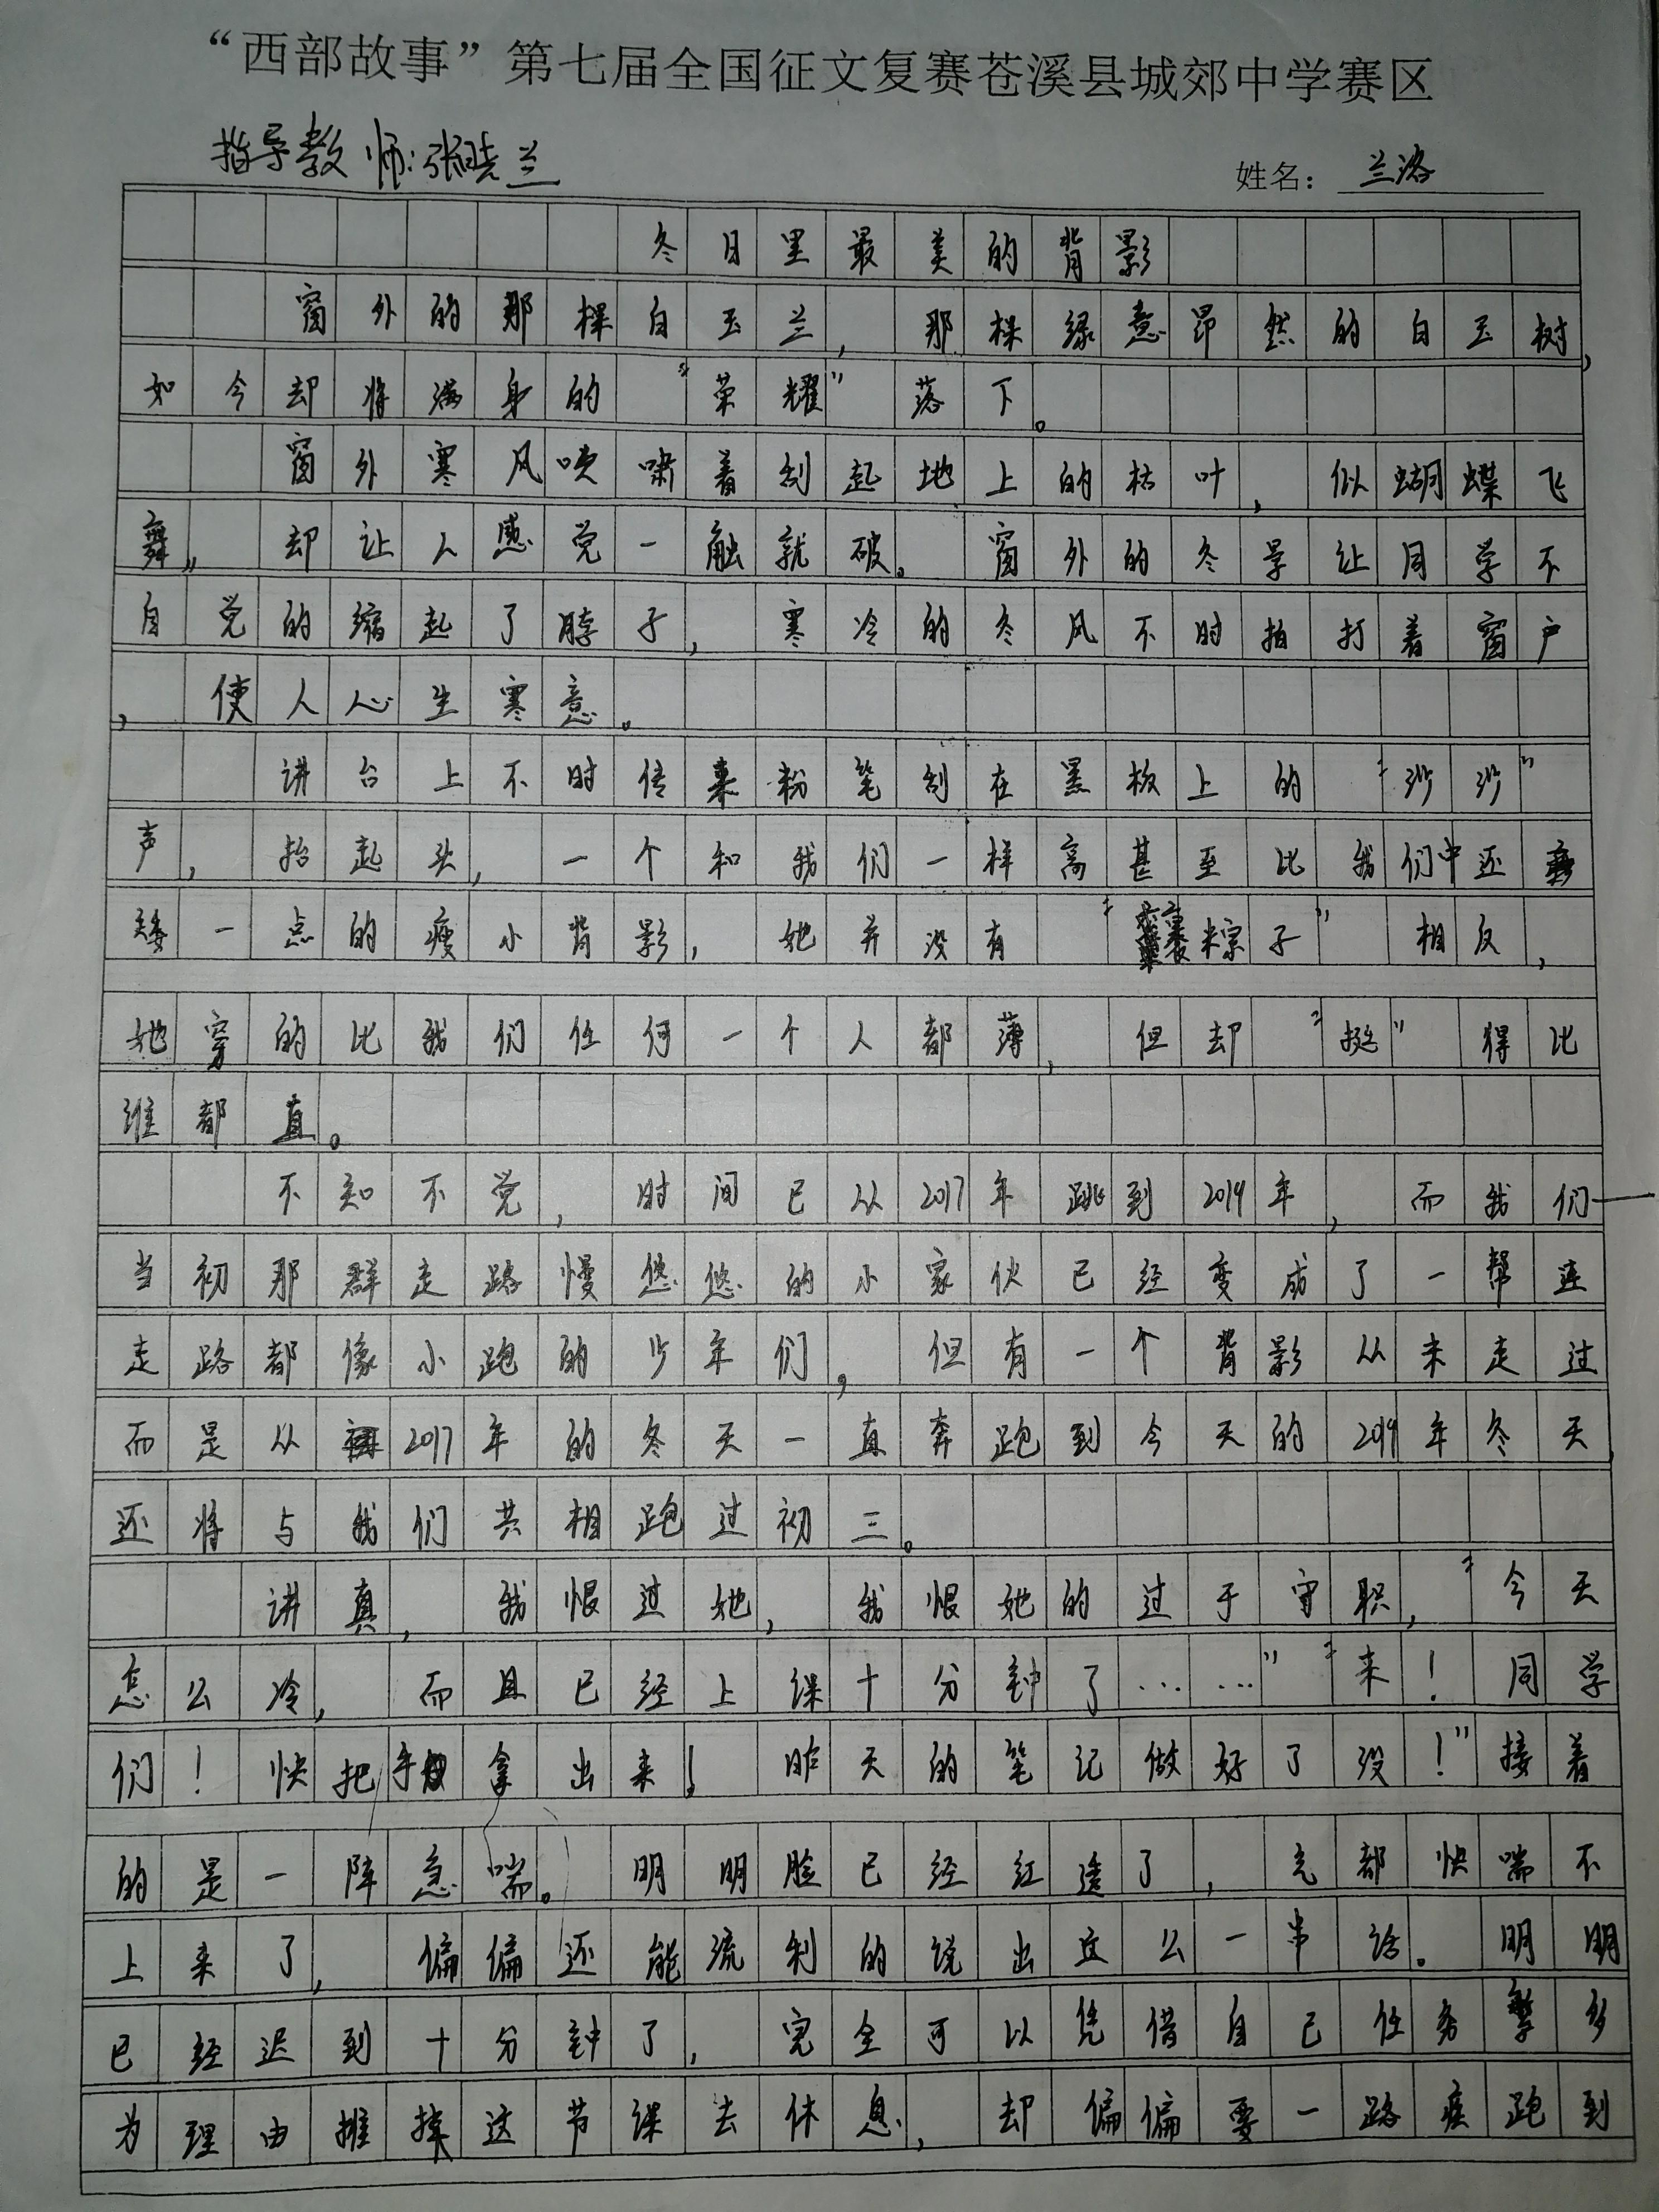 “西部故事”第七届全国征文复赛苍溪县城郊中学赛区
指导教师:张晓兰 姓名：兰洛
冬日里最美的背影
窗外的那棵白玉兰，那棵绿意昂然的白玉树，
如今却将满身的“荣耀”落下。
窗外寒风唤啸着刮起地上的枯叶，似蝴蝶飞
舞，却让人感觉一触就破。窗外的冬景让同学不
自觉的缩起了脖子，寒冷的冬风不时拍打着窗户
，使人人心生寒意。
讲台上不时传来粉笔刮在黑板上的“沙沙”
声，抬起头，一个和我们一样高甚至比我们中还
矮一点的瘦小背影，她并没有“裹粽子”相反，
她穿的比我们任何一个人都薄，但却“挺”得比
谁都直。
不知不觉，时间已从2017年跳到2019年，而我们—
当初那群走路慢悠悠的小家伙已经变成了一帮连
走路都像小跑的少年们，但有一个背影从未走过
而是从2017年的冬天一直奔跑到今天的2019年冬天，
还将与我们共相跑过初三。
讲真，我恨过她，我恨她的过于守职，“今天
怎么冷，而且已经上课十分钟了……”“来！同学
们！快把手拿出来！昨天的笔记做好了没！”接着
的是一阵急喘。明明脸已经红透了，气都快喘不
上来了，偏偏还能流利的说出这么一串话。明明
已经迟到十分钟了，完全可以凭借自己任务繁多
为理由推掉这节课去休息，却偏偏要一路疾跑到